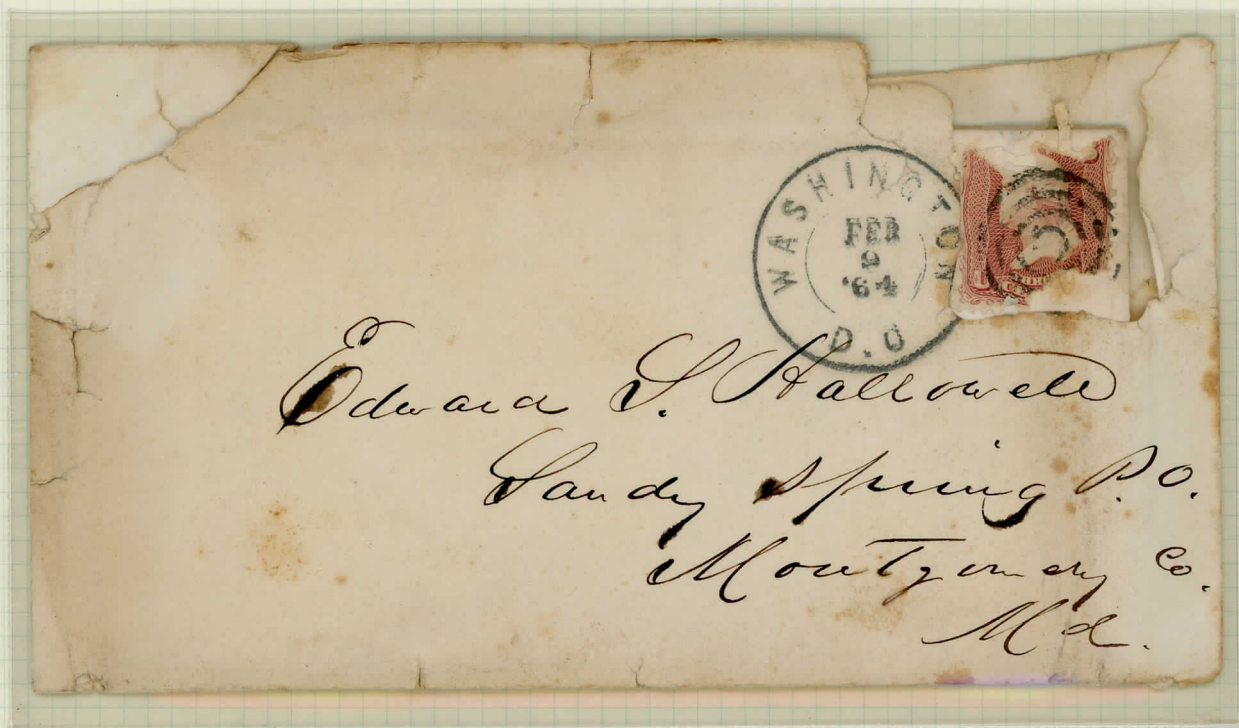 WASHINGTON
FEB
9
'64
D.C
Edward S. Hallowell
Sandy Spring P.O.
Montgomery Co.
Md.